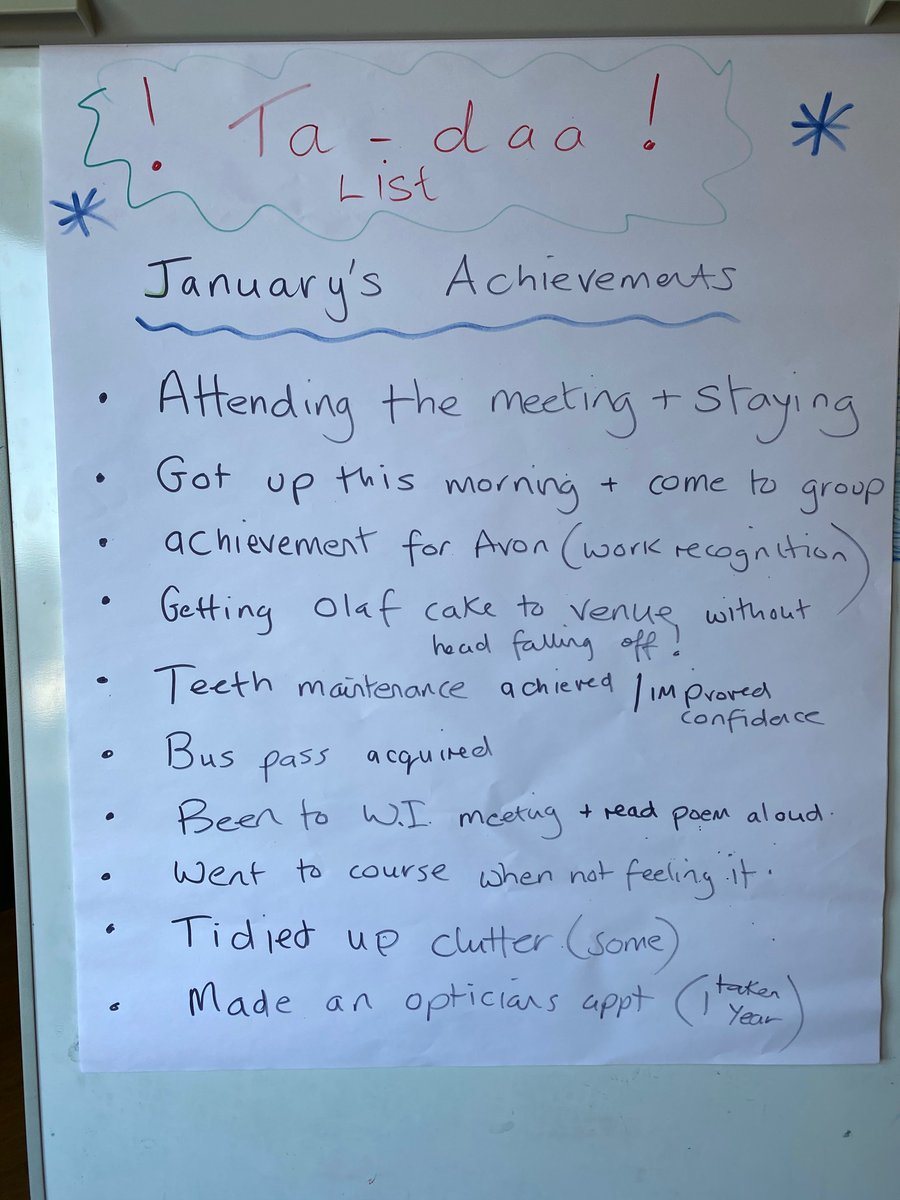 ! Ta-daa!
List
January's Achievements
• Attending the meeting + staying
• Got up this morning + come to group
• achievement for Avon (work recognition)
• Getting Olaf cake to venue without
head falling off!
• Teeth maintenance achieved / improved
confidence
• Bus pass acquired
• Been to W.I. meeting + read poem aloud.
• Went to course when not feeling it.
• Tidied up clutter (some)
• Made an opticians appt (taken
1 year)